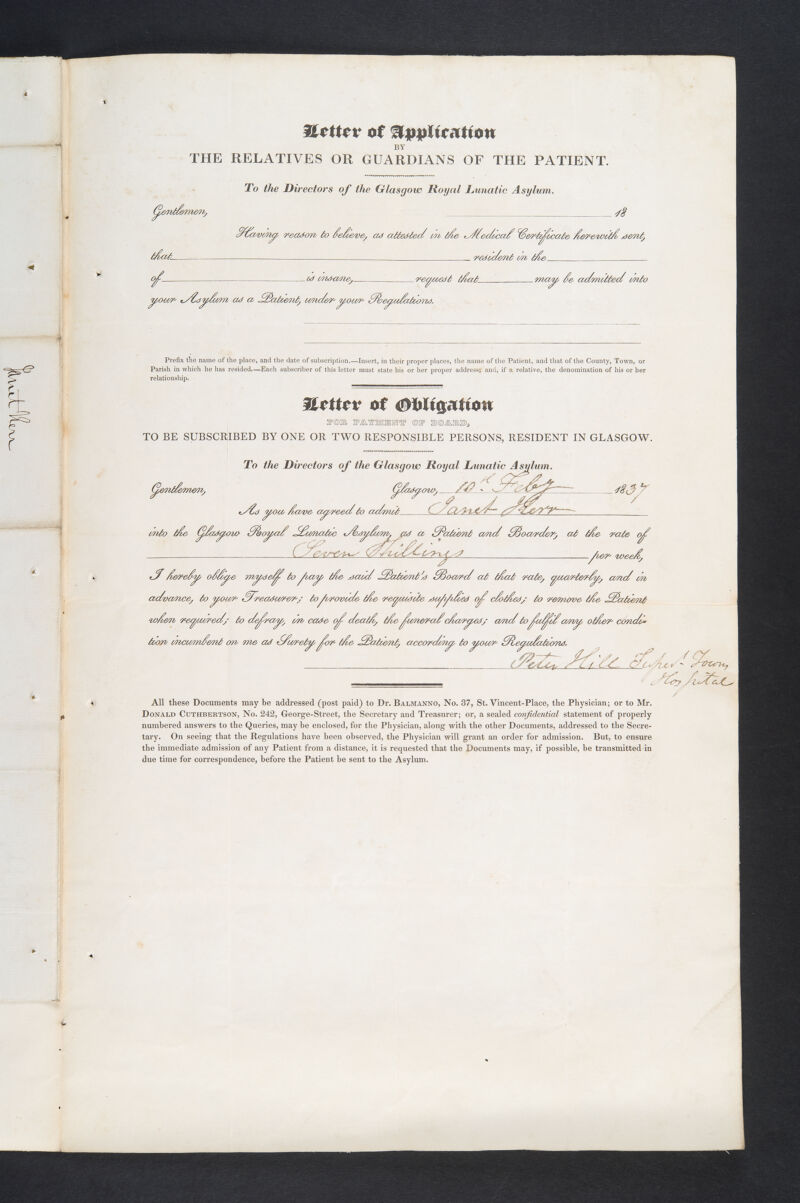 Letter of Application
BY
THE RELATIVES OR GUARDIANS OF THE PATIENT.
To the Directors of the Glasgow Royal Lunatic Asylum.
Gentlemen, 18
Having reason to believe, as attested in the Medical Certificate herewith sent,
that resident in the
of is insane, request that may be admitted into
your Asylum as a Patient, under your Regulations.
Prefix the name of the place, and the date of subscription.—Insert, in their proper places, the name of the Patient, and that of the County, Town, or
Parish in which he has resided.—Each subscriber of this letter must state his or her proper address; and, if a relative, the denomination of his or her
relationship.
Janet Kerr
Letter of Obligation
FOR PAYMENT OF BOARD,
TO BE SUBSCRIBED BY ONE OR TWO RESPONSIBLE PERSONS, RESIDENT IN GLASGOW.
To the Directors of the Glasgow Royal Lunatic Asylum.
Gentlemen, Glasgow, Feby 1837
As you have agreed to admit Janet Kerr
into the Glasgow Royal Lunatic Asylum, as a Patient and Boarder, at the rate of
Seven Shillings per week,
I hereby oblige myself to pay the said Patient's Board at that rate, quarterly, and in
advance, to your Treasurer; to provide the requisite supplies of clothes; to remove the Patient
when required; to defray, in case of death, the funeral charges; and to fulfil any other condi-
tion incumbent on me as Surety for the Patient, according to your Regulations.
Peter Hill Supert. Towns
Hospital
All these Documents may be addressed (post paid) to Dr. BALMANNO, No. 37, St. Vincent-Place, the Physician; or to Mr.
DONALD CUTHBERTSON, No. 242, George-Street, the Secretary and Treasurer; or, a sealed confidential statement of properly
numbered answers to the Queries, may be enclosed, for the Physician, along with the other Documents, addressed to the Secre-
tary. On seeing that the Regulations have been observed, the Physician will grant an order for admission. But, to ensure
the immediate admission of any Patient from a distance, it is requested that the Documents may, if possible, be transmitted in
due time for correspondence, before the Patient be sent to the Asylum.